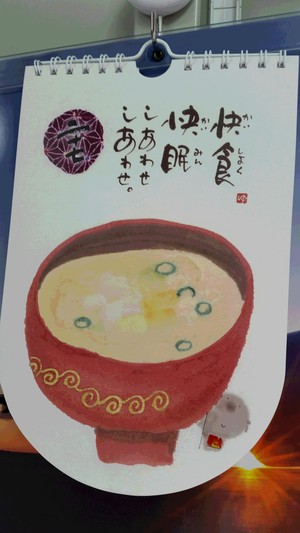 快食
かいしょく
快眠
かいみん
しあわせ
しあわせ。
二十七